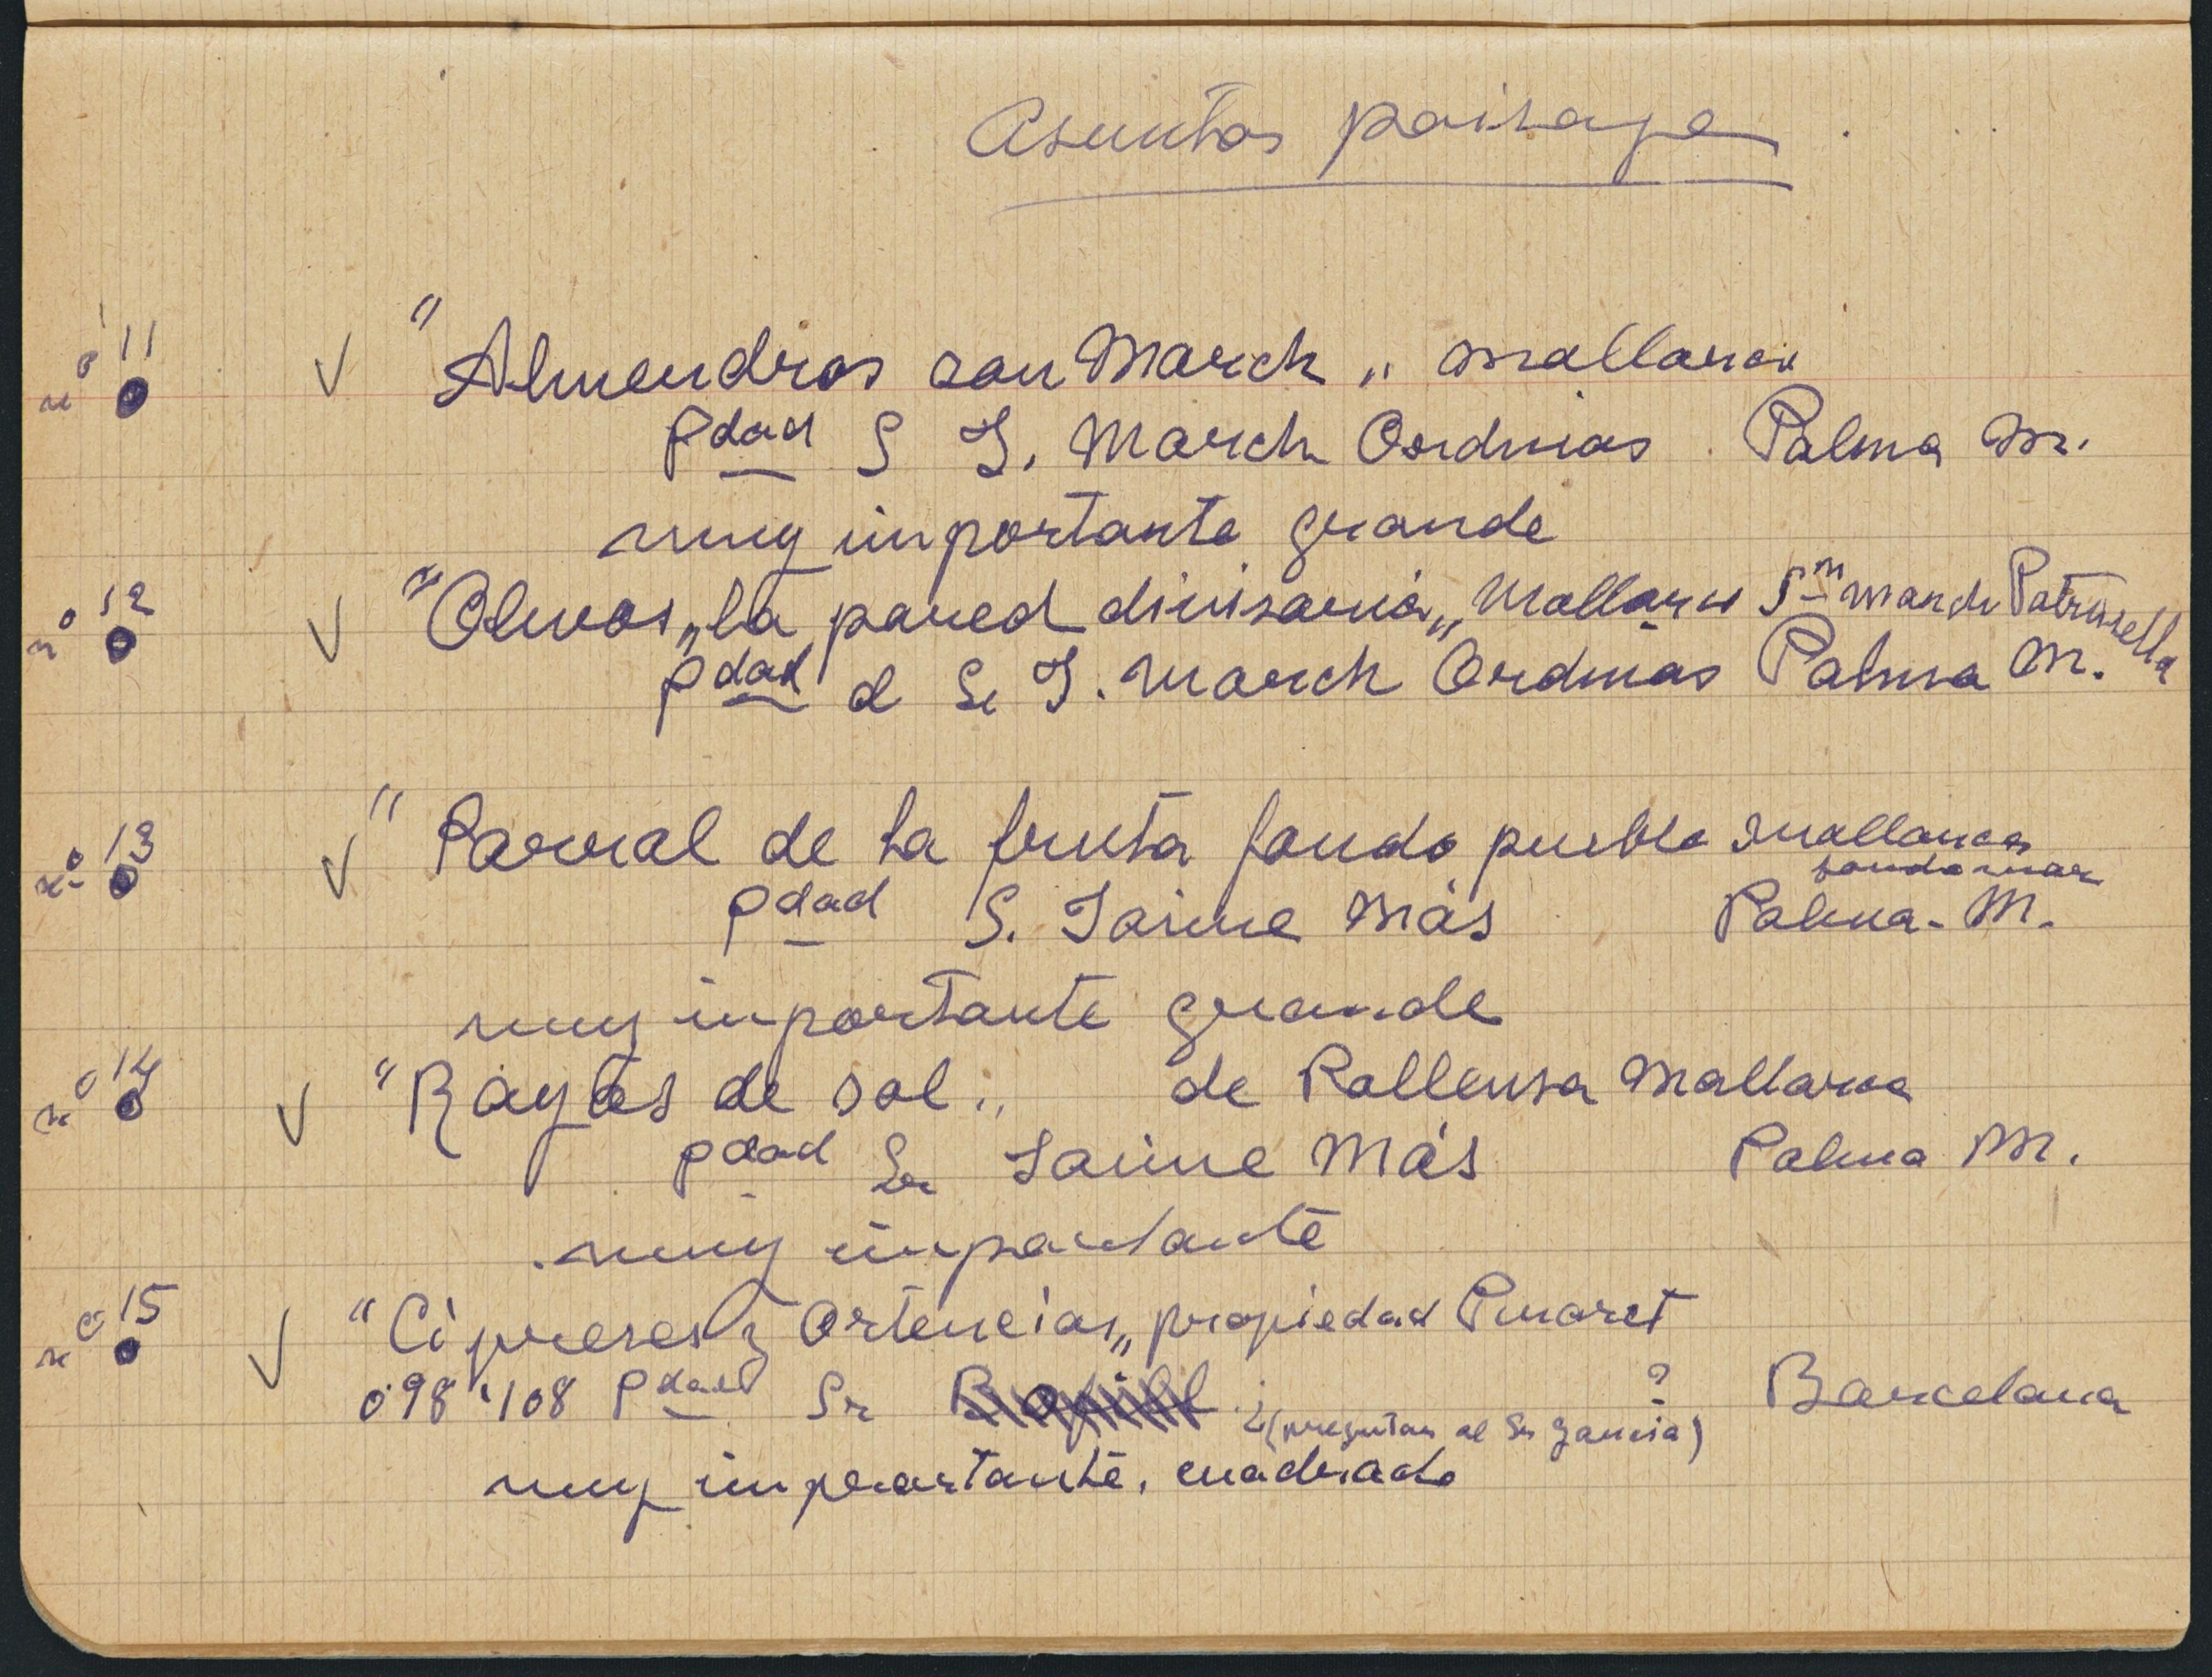 Asuntos paisage
nº 11 ✓ "Almendros son March„ Mallorca
pdad S J. March Ordinas Palma M.
muy importante grande
nº 12 ✓ "Olivos„ la pared divisaria„ Mallorca Sn March
pdad d Sr J. March Ordinas Palma M.
nº 13 ✓ "Parral de la fruta fondo pueblo Mallorca
fondo mar
pdad S. Jaime Más Palma - M.
muy inportante grande
nº 14 ✓ "Rayos de sol„ de Pollensa Mallorca
pdad Sr Jaime Más Palma M.
muy importante
nº 15 ✓ "Cipreses y Ortencias„ propiedad Pinaret
0'98 '108 Pdad Sr ¿(preguntar al Sr Garcia) ? Barcelona
muy importante, cuadrado